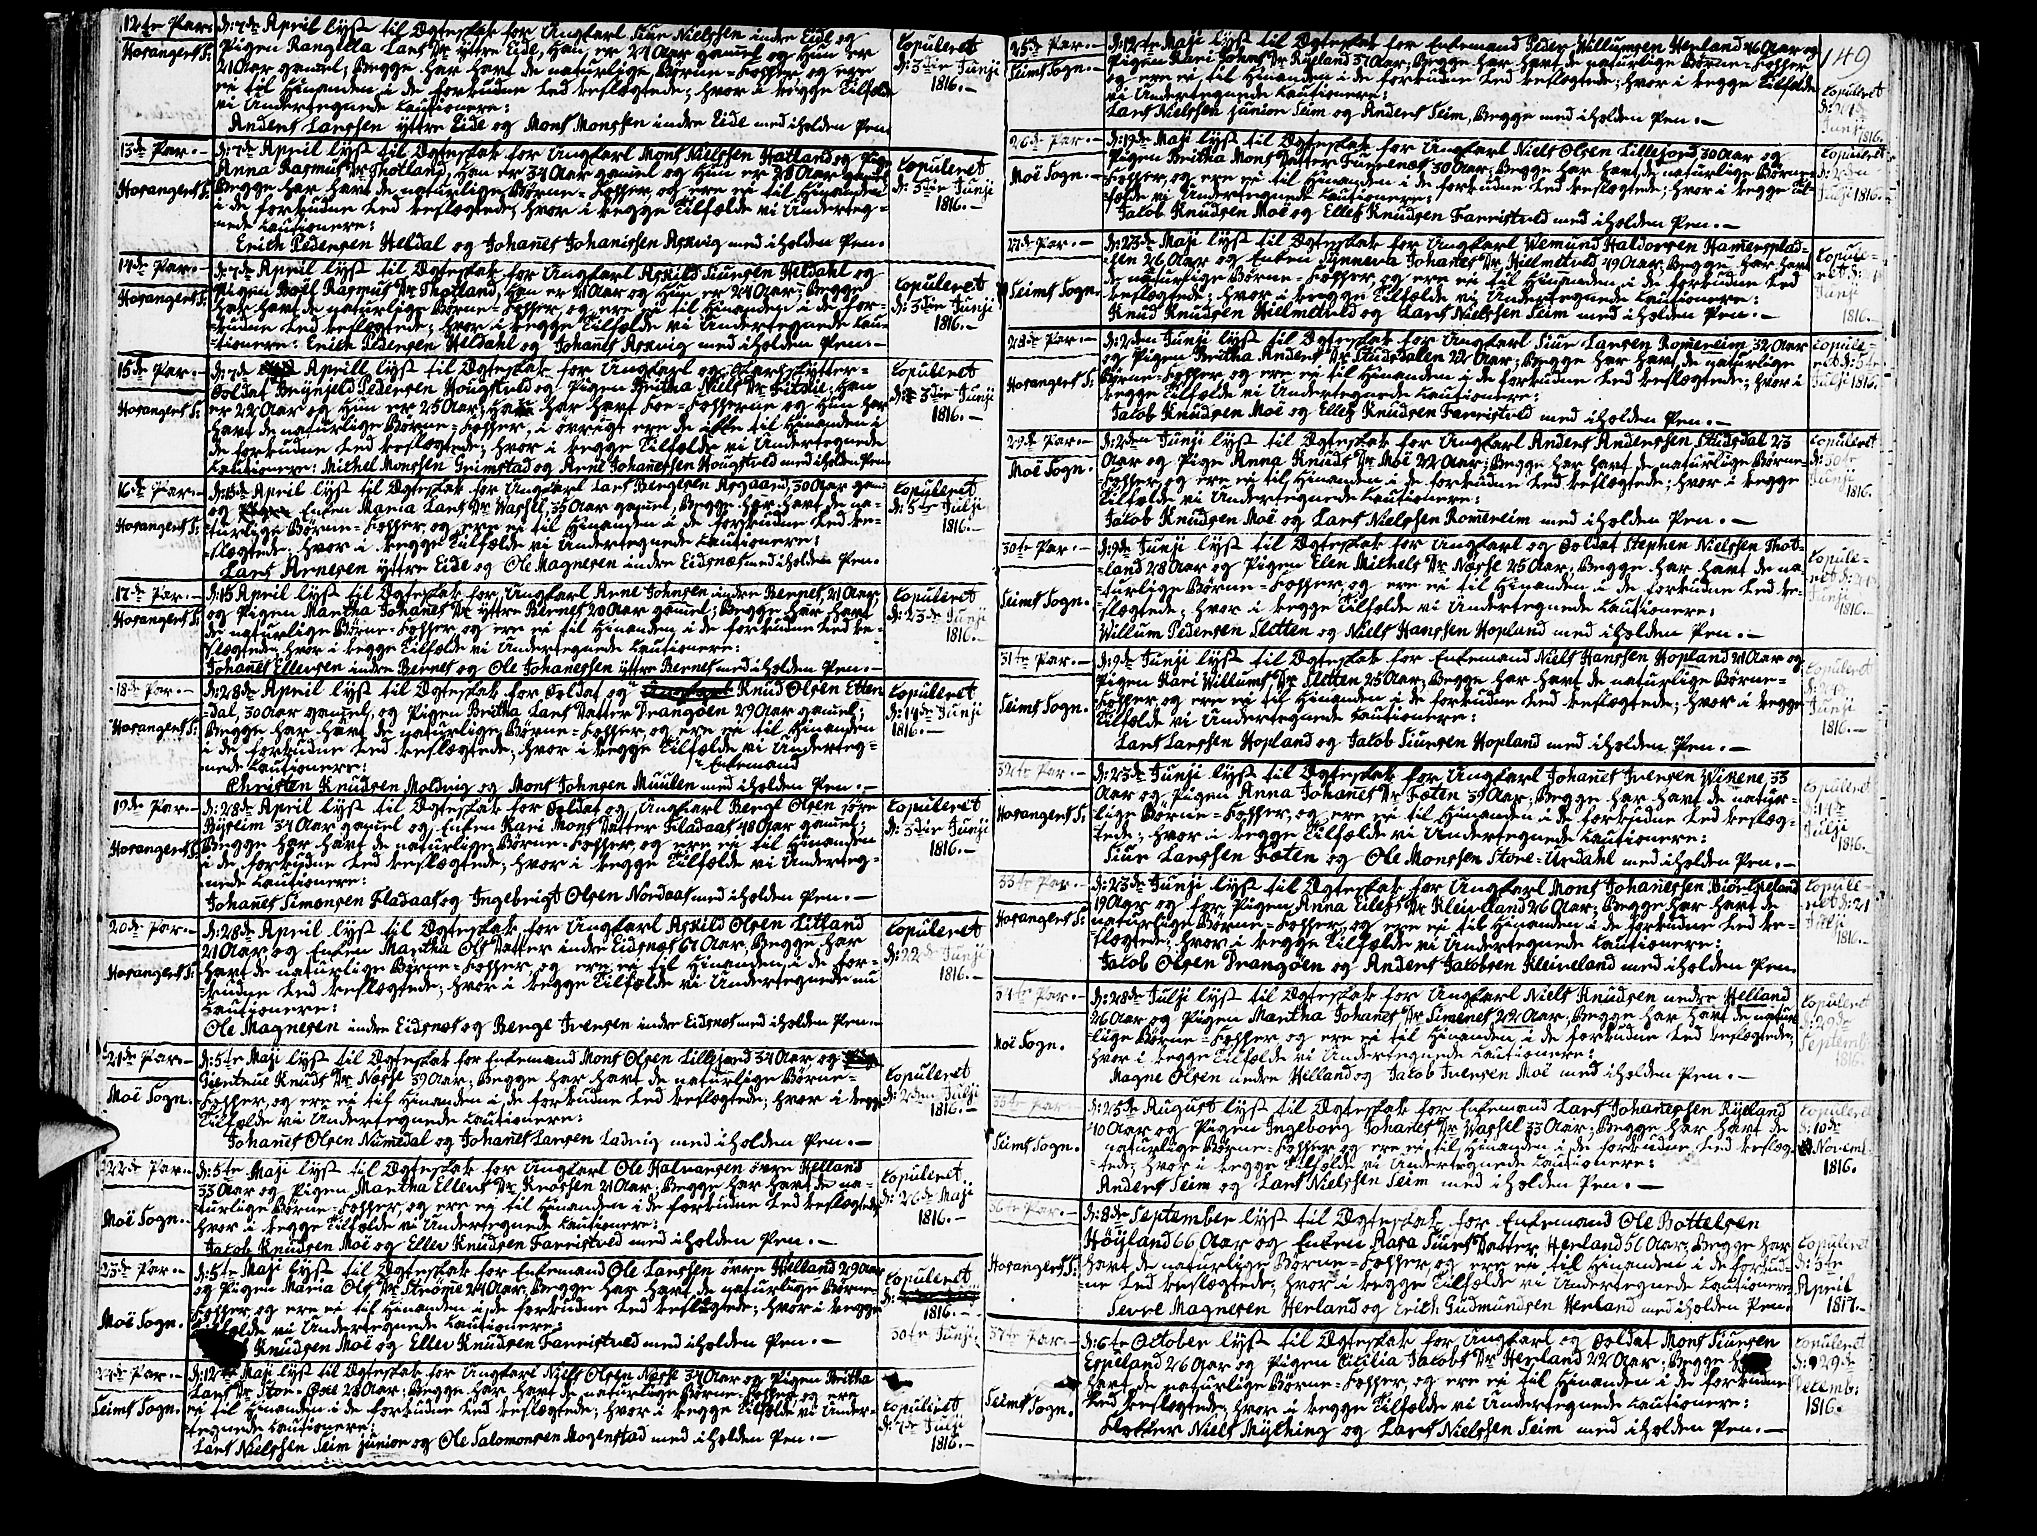 12te Par.
Hosangers S:
d: 7de April lyst til Ægteskab for Ungkarl Siur Nielssen indre Eide og
Pigen Rangilla Lars Dr yttre Eide, Han er 24 Aar gamel og Hun er
21 Aar gamel; Begge har havt de naturlige Børne-Kopper og ere
ei til Hinanden i de forbudne Led beslægtede; hvor i begge Tilfælde
vi Undertegnede Cautionere:
Anders Larssen yttre Eide og Mons Monssen indre Eide med iholden Pen.
Copuleret
d: 3die Junji
1816.-
13de Par.-
Hosangers S:
d: 7de April lyst til Ægteskab for Ungkarl Mons Nielssen Hatland og Pigen
Anna Rasmus Dr Thotland, Han er 34 Aar gamel og Hun er 28 Aar gamel
Begge har havt de naturlige Børne-Kopper, og ere ei til Hinanden
i de forbudne Led beslægtede; hvor i begge Tilfælde vi Underteg-
nede Cautionere:
Erich Pedersen Heldal og Johanes Johanissen Askvig med iholden Pen.
Copuleret
d: 3die Junji
1816.-
14de Par.-
Hosangers S:
d: 7de April lyst til Ægteskab for Ungkarl Askild Siursen Heldahl og
Pigen Boel Rasmus Dr Thotland, Han er 21 Aar og Hun er 24 Aar; Begge
har havt de naturlige Børne-Kopper, og ere ei til Hinanden i de for-
budne Led beslægtede; hvor i begge Tilfælde vi Undertegnede Cau-
tionere: Erich Pedersen Heldahl og Johanes Askvig med iholden Pen.-
Copuleret
d: 3die Junji
1816.-
15de Par.-
Hosangers S:
d: 7de Aprill lyst til Ægteskab for Ungkarl og Skarpskytter-
Soldat Brynjeld Pedersen Hougstvld og Pigen Britha Niels Dr Eitdle; Han
er 22 Aar og Hun er 25 Aar; Han har havt Koe-Kopperne og Hun har
havt de naturlige Børne-Kopper, i øvrigt ere de ikke til Hinanden i
de forbudne Led beslægtede; hvor i begge Tilfælde vi Undertegnede
Cautionere: Michel Monssen Grimstad og Arne Johanessen Hougstvld med iholden Pen
Copuleret
d: 3die Junji
1816.-
16de Par.-
Hosangers S:
d: 15de April lyst til Ægteskab for Ungkarl Lars Bergesen Asgaard, 30 Aar gam:
og Enken Maria Lars Dr Wassel, 35 Aar gamel, Begge har havt de na-
turlige Børne-Kopper og ere ei til Hinanden i de forbudne Led be-
slægtede; hvor i begge Tilfælde vi Undertegnede Cautionere:
Lars Arnesen yttre Eide og Ole Magnesen indre Eidsnæs med iholden Pen.
Copuleret
d: 5te Julji
1816.-
17de Par.-
Hosangers S:
d: 15 April lyst til Ægteskab for Ungkarl Arne Johnsen indre Bernes, 21 Aar
og Pigen Martha Johanes Dr yttre Bernes 20 Aar gamel; Begge har havt
de naturlige Børne-Kopper og ere ei til Hinanden i de forbudne Led be-
slægtede, hvor i begge Tilfælde vi Undertegnede Cautionere:
Johanes Ellensen indre Bernes og Ole Johanessen yttre Bernes med iholden Pen.-
Copuleret
d: 23de Junji
1816.-
18de Par.-
Hosangers S:
d: 28de April lyst til Ægteskab for Soldat og Ungkarl Knud Olsen Etten
dal, 30 Aar gamel, og Pigen Britha Lars Datter Drangøen 29 Aar gamel;
Begge har havt de naturlige Børne-Kopper, og ere ei til Hinanden
i de forbudne Led beslægtede; hvor i begge Tilfælde vi Underteg-
nede Cautionere: Enkemand
Christen Knudsen Moldvig og Mons Johnsen Muulen med iholden Pen.-
Copuleret
d: 14de Junji
1816.-
19de Par.-
Hosangers S:
d: 28de April lyst til Ægteskab for Soldat og Ungkarl Berge Olsen søre
Byseim 34 Aar gamel og Enken Kari Mons Datter Fladaas 48 Aar gamel;
Begge har havt de naturlige Børne-Kopper og ere ei til Hinanden
i de forbudne Led beslægtede, hvor i begge Tilfælde vi Underteg-
nede Cautionere:
Johanes Simonsen Fladaas og Ingebrigt Olsen Nordaas med iholden Pen.-
Copuleret
d: 3die Junji
1816.-
20de Par.-
Hosangers S:
d: 28de April lyst til Ægteskab for Ungkarl Askild Olsen Litland
21 Aar og Enken Martha Ols Datter indre Eidsnæs 67 Aar, Begge har
havt de naturlige Børne-Kopper, og ere ei til Hinanden i de for-
budne Led beslægtede; hvor i begge Tilfælde vi Undertegnede nu
Cautionere:
Ole Magnesen indre Eidsnæs og Berge Iversen indre Eidsnæs med iholden Pen.-
Copuleret
d: 22de Junji
1816.-
21de Par.-
Moë Sogn.
d: 5te Maji lyst til Ægteskab for Enkemand Mons Olsen Lillefjord 34 Aar og
Giertrue Knuds Dr Næsse 39 Aar; Begge har havt de naturlige Børne-
Kopper, og ere ei til Hinanden i de forbudne Led beslægtede; hvor i begge
Tilfælde vi Undertegnede Cautionere:
Johanes Olsen Numedal og Johanes Larsen Ladvig med iholden Pen.-
Copuleret
d: 2den Julji
1816.-
22de Par.-
Moë Sogn.
d: 5te Maji lyst til Ægteskab for Ungkarl Ole Halvarsen øvre Helland
33 Aar og Pigen Martha Ellens Dr Knossen 21 Aar; Begge har havt de na-
turlige Børne-Kopper, og ere ei til Hinanden i de forbudne Led beslægtede
hvor i begge Tilfælde vi Undertegnede Cautionere:
Jacob Knudsen Moë og Ellev Knudsen Farristvld med iholden Pen.-
Copuleret
d: 26de Maji
1816.-
23de Par.-
Moë Sogn.
d: 5te Maji lyst til Ægteskab for Enkemand Ole Larssen øvre Helland 29 Aar
og Pigen Maria Ols Dr Strømme 24 Aar; Begge har havt de naturlige Børne-
Kopper, og ere ei til Hinanden i de forbudne Led beslægtede; hvor i begge
Tilfælde vi Undertegnede Cautionere:
Knudsen Moë og Ellev Knudsen Farristvld med iholden Pen.-
Copuleret
d:
1816.-
30te Junji
24de Par.-
Seims Sogn.
d: 12te Maji lyst til Ægteskab for Ungkarl Niels Olsen Næsse 34 Aar og Pigen Britha
Lars Dr Store-Øxe 28 Aar; Begge har havt de naturlige Børne-Kopper og ere
ei til Hinanden i de forbudne Led beslægtede; hvor i begge Tilfælde vi Under-
tegnede Cautionere:
Lars Nielssen Seim junior og Ole Salomonsen Mogenstad med iholden Pen.-
Copuleret
d: 7de Julji
1816.-
149
25de Par.-
Seims Sogn.
d: 12te Maji lyst til Ægteskab for Enkemand Peder Willumsen Herland 46 Aar og
Pigen Kari Johns Dr Ryeland 37 Aar; Begge har havt de naturlige Børne-Kopper
og ere ei til Hinanden i de forbudne Led beslægtede; hvor i begge Tilfælde
vi Undertegnede Cautionere:
Lars Nielssen junior Seim og Anders Seim, Begge med iholden Pen.-
Copuleret
d: 24de
Junji
1816.
26de Par.-
Moë Sogn.
d: 19de Maji lyst til Ægteskab for Ungkarl Niels Olsen Lillefjord 30 Aar og
Pigen Britha Mons Datter Furenæs 30 Aar; Begge har havt de naturlige Børne-
Kopper, og ere ei til Hinanden i de forbudne Led beslægtede; hvor i begge Til-
fælde vi Undertegnede Cautionere:
Jacob Knudsen Moë og Ellef Knudsen Farristvld med iholden Pen.-
Copuleret
d: 2den
Julji 1816.-
27de Par.-
Seims Sogn.
d: 23de Maji lyst til Ægteskab for Ungkarl Wemund Haldorsen Hamersplad-
sen 26 Aar og Enken Synneva Johanes Dr Hielmtvld 49 Aar; Begge har havt
de naturlige Børne-Kopper, og ere ei til Hinanden i de forbudne Led
beslægtede; hvor i begge Tilfælde vi Undertegnede Cautionere:
Knud Knudsen Hielmtvld og Lars Nielssen Seim med iholden Pen.-
Copule-
ret d:
Junji
1816.-
28de Par.-
Hosangers S:
d: 2den Junji lyst til Ægteskab for Ungkarl Siur Larsen Romereim 32 Aar
og Pigen Britha Anders Dr Studsdalen 22 Aar; Begge har havt de naturlige
Børne-Kopper, og ere ei til Hinanden i de forbudne Led beslægtede; hvor i
begge Tilfælde vi Undertegnede Cautionere:
Jacob Knudsen Moë og Ellef Knudsen Farristvld med iholden Pen.-
Copule-
ret d: 5te
Julji 1816.
29de Par.-
Moë Sogn.
d: 2den Junji lyst til Ægteskab for Ungkarl Anders Anderssen Studsdal 23
Aar og Pige Anna Knuds Dr Moë 22 Aar; Begge har havt de naturlige Børne-
Kopper, og ere ei til Hinanden i de forbudne Led beslægtede; hvor i begge
Tilfælde vi Undertegnede Cautionere:
Jacob Knudsen Moë og Lars Nielssen Romereim med iholden Pen.-
Copuleret
d: 30te
Junji
1816.-
30te Par.-
Seims Sogn.
d: 9de Junji lyst til Ægteskab for Ungkarl og Soldat Stephen Nielssen Thot-
land 28 Aar og Pigen Elen Michels Dr Næsse 25 Aar; Begge har havt de na-
turlige Børne-Kopper, og ere ei til Hinanden i de forbudne Led be-
slægtede; hvor i begge Tilfælde vi Undertegnede Cautionere:
Willum Pedersen Sletten og Niels Hanssen Hopland med iholden Pen.-
Copule-
ret d: 24de
Junji
1816.-
31te Par.-
Seims Sogn.
d: 9de Junji lyst til Ægteskab for Enkemand Niels Hanssen Hopland 21 Aar og
Pigen Kari Willums Dr Sletten 25 Aar; Begge har havt de naturlige Børne-
Kopper, og ere ei til Hinanden i de forbudne Led beslægtede; hvor i begge
Tilfælde vi Undertegnede Cautionere:
Lars Larssen Hopland og Jacob Siursen Hopland med iholden Pen.-
Copuleret
d: 24de
Junji
1816.-
32te Par.-
Hosangers S:
d: 23de Junji lyst til Ægteskab for Ungkarl Johanes Iversen Wikene, 33
Aar og Pigen Anna Johanes Dr Fæten 39 Aar; Begge har havt de natur-
lige Børne-Kopper, og ere ei til Hinanden i de forbudne Led beslæg-
tede; hvor i begge Tilfælde vi Undertegnede Cautionere:
Siur Larssen Fæten og Ole Monssen Store-Urdahl med iholden Pen.-
Copuleret
d: 14de
Julji
1816.-
33te Par.-
Hosangers S:
d: 23de Junji lyst til Ægteskab for Ungkarl Mons Johanessen Biørtsieland
19 Aar og for Pigen Anna Eilefs Dr Kleiveland 26 Aar; Begge har havt de
naturlige Børne-Kopper, og ere ei til Hinanden i de forbudne Led be-
slægtede; hvor i begge Tilfælde vi Undertegnede Cautionere:
Jacob Olsen Drangøen og Anders Jacobsen Kleiveland med iholden Pen.
Copule-
ret d: 21
Julji
1816.-
34te Par.-
Moë Sogn.
d: 28de Julji lyst til Ægteskab for Ungkarl Niels Knudsen nedre Helland
26 Aar og Pigen Martha Johanes Dr Simenes 22 Aar; Begge har havt de natur
lige Børne-Kopper og ere ei til Hinanden i de forbudne Led beslægtede;
hvor i begge Tilfælde vi Undertegnede Cautionere:
Magne Olsen nedre Helland og Jacob Iversen Moë med iholden Pen.-
Copuleret
d: 29de
Septemb:
1816.
35te Par.-
Seims Sogn.
d: 25de August lyst til Ægteskab for Enkemand Lars Johanessen Ryeland
40 Aar og Pigen Ingeborg Johanes Dr Wassel 33 Aar; Begge har havt de
naturlige Børne-Kopper og ere ei til Hinanden i de forbudne Led beslæg-
tede; hvor i begge Tilfælde vi Undertegnede Cautionere:
Anders Seim og Lars Nielssen Seim med iholden Pen.-
Copuleret
d: 10de
Novemb
1816.
36te Par.-
Hosangers S:
d: 8de September lyst til Ægteskab for Enkemand Ole Bottelsen
Høyland 66 Aar og Enken Aasa Siurs Datter Herland 56 Aar; Begge har
havt de naturlige Børne-Kopper og ere ei til Hinanden i de forbud-
ne Led beslægtede; hvor i begge Tilfælde vi Undertegnede Cautionere
Sevre Magnesen Herland og Erich Gudmundsen Herland med iholden Pen.
Copuleret
d: 5te
April
1817.-
37te Par.-
Seims Sogn.
d: 6te October lyst til Ægteskab for Ungkarl og Soldat Mons Siursen
Espeland 26 Aar og Pigen Cicilia Jacobs Dr Herland 22 Aar; Begge
havt de naturlige Børne-Kopper, og ere ei til Hinanden i de forbudne
Led beslægtede; hvor i begge Tilfælde vi Undertegnede Cautionere:
Klokker Niels Mylthing og Lars Nielssen Seim med iholden Pen.-
Copuleret
d: 29de
Decemb:
1816.